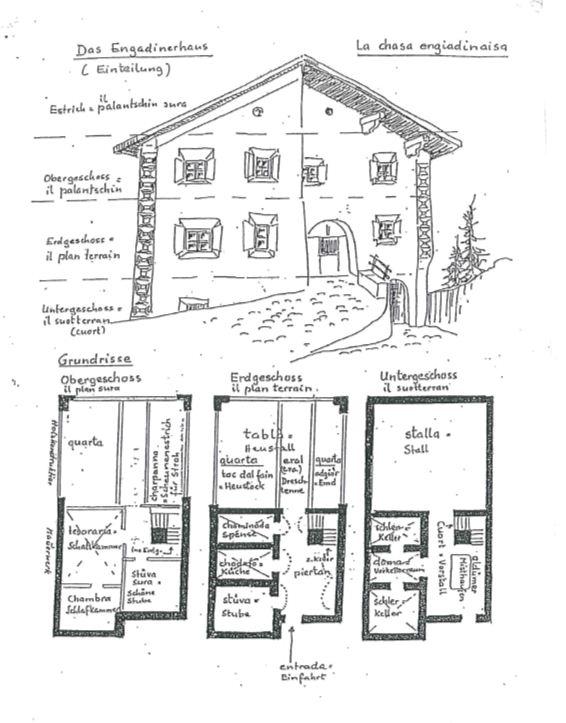 Das Engadinerhaus
La chasa engiadinaisa
( Einteilung)
Estrich = il palantschin sura
Obergeschoss =
il palantschin
Erdgeschoss =
il plan terrain
Untergeschoss =
il suotterran
(cuort)
Grundrisse
Obergeschoss
il plan sura
Erdgeschoss
il plan terrain.
Untergeschoss
il suotterran
Holzkonstruktion
Mauerwerk
quarta
charpanna =
Scheunenestrich
für Stroh
Schlafkammer
Chambra
Schlafkammer
Stüva
sura =
Schöne
Stube
tablà =
Heustall
quarta
toc dal fain
= Heustock
eral
(era)
Dresch-
tenne
quarta
= Emd
chaminada
Spense
Küche
stüva =
Stube
z. Keller
piertan
entrada =
Einfahrt
stalla =
Stall
schler =
Keller
schler =
Keller
Cuort = Vorstall
Misthaufen